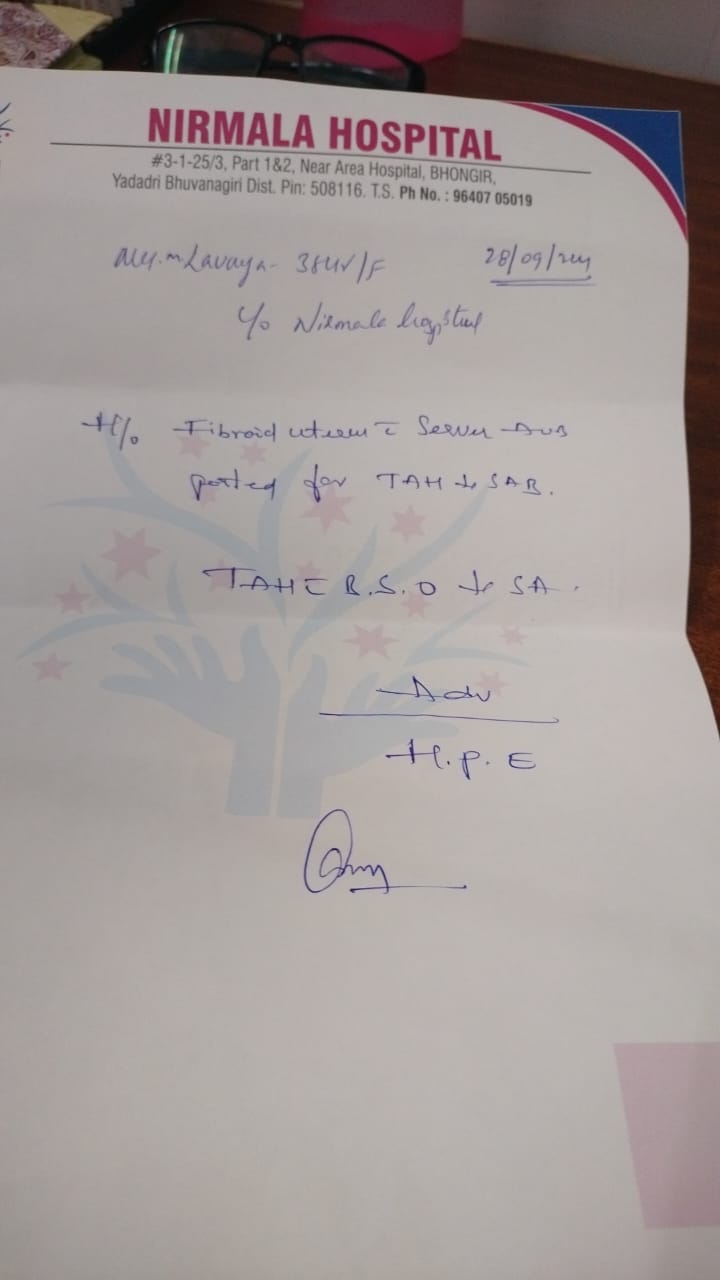 NIRMALA HOSPITAL
#3-1-25/3, Part 1&2, Near Area Hospital, BHONGIR,
Yadadri Bhuvanagiri Dist. Pin: 508116. T.S. Ph No. : 96407 05019
m. Lavaya - 38Yr/F 28/09/24
C/o Nirmala hospital
H/o Fibroid uterus c̄ Severe AUB
posted for TAH ↓ SAB.
TAH c̄ B.S.O ↓ SA.
Adv
H.P.E